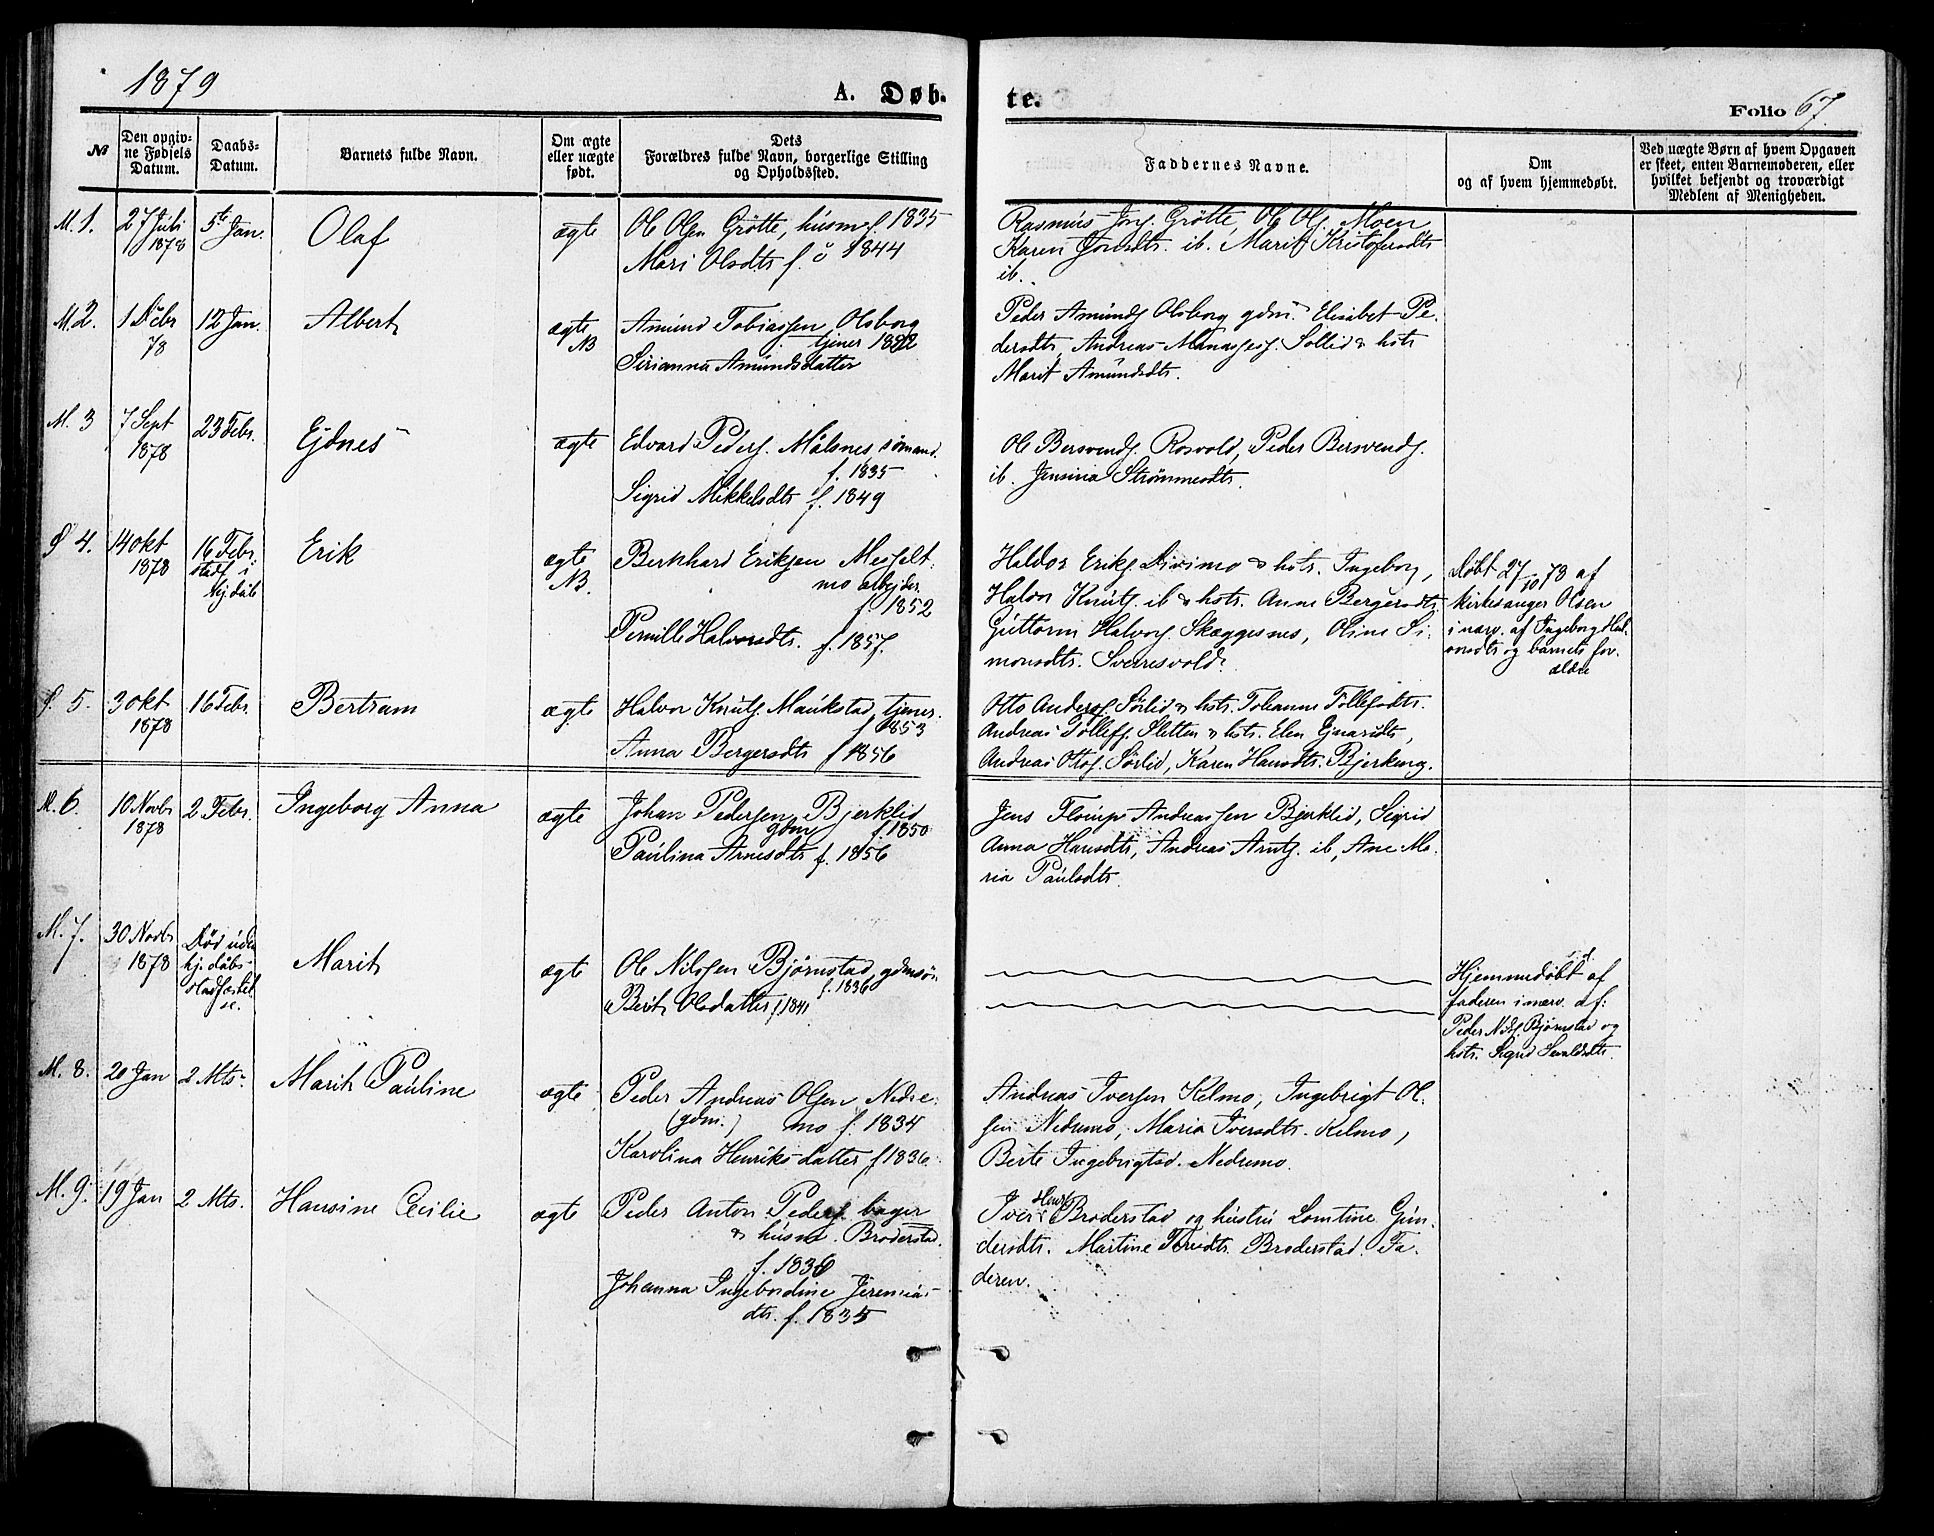 1879
A. Døb-
te.
Folio 67.
№
Den opgiv-
ne Fødsels
Datum.
Daabs-
Datum.
Barnets fulde Navn.
Om ægte
eller uægte
født.
Dets
Forældres fulde Navn, borgerlige Stilling
og Opholdssted.
Faddernes Navne.
Om
og af hvem hjemmedøbt.
Ved uægte Børn af hvem Opgaven
er skeet, enten Barnemoderen, eller
hvilket bekjendt og troværdigt
Medlem af Menigheden.
M. 1.
27 Juli
1878
5te Jan.
Olaf
ægte
Ole Olsen Grötte, husm. f. 1835
Mari Olsdtr f. 1844
Rasmus Jons. Grötte, Ole Ols. Moen
Karen Jonsdtr. ib. Marit Kristofersdtr
ib.
M. 2.
1 Decbr
78
12 Jan.
Albert
ægte
NB
Amund Tobiassen Olsborg
tjener 1852
Sirianna Amundsdatter
Peder Amunds. Olsborg gdm. Elisabet Pe-
dersdtr, Andreas Manasses. Sollid & hstr
Marit Amundsdtr.
M. 3
7 Sept
1878
23 Febr.
Ejdnes
ægte
Edvard Peders. Målsnes sömand.
f. 1835
Sigrid Mikkelsdtr f. 1849
Ole Bersvends. Rosvold, Peder Bersvends.
ib. Jensina Strømmesdtr.
S 4.
14 okt
1878
16 Febr.
stadf. i
hj.dåb
Erik
ægte
NB.
Bernhard Eriksen Messelt-
mo arbejder.
f. 1852
Pernille Halvorsdtr. f. 1857.
Haldor Eriks. Divimo & hstr. Ingeborg,
Halvor Knuts. ib & hstr. Anne Bergersdtr.
Guttorm Halvors. Skæggesnes, Oline Si-
monsdtr. Sverresvold.
Døbt 27/10 78 af
kirkesanger Olsen
i nærv. af Ingeborg Hal-
vorsdtr og barnets for-
ældre
S. 5.
3 okt
1878
16 Febr.
Bertram
ægte
Halvor Knuts. Maukstad, tjener.
f. 1853
Anna Bergersdtr f 1856
Otto Anders. Sørlid & hstr. Johanne Tollefsdtr.
Andreas Tollefs. Sletten & hstr. Elen Ejnarsdtr,
Andreas Ottos. Sørlid, Karen Hansdtr. Bjerkeng.
M. 6.
10 Novbr
1878
2 Febr.
Ingeborg Anna
ægte
Johan Pedersen Bjerklid
gdm f. 1850
Paulina Arnesdtr f. 1856
Jens Floinp Andreassen Bjerklid, Sigrid
Anna Hansdtr, Andreas Arnts. ib, Ane Ma-
ria Paulsdtr.
M. 7.
30 Novbr
1878
Død uden
hj.dåbs-
stadfæstel-
se.
Marit
ægte
Ole Nilssen Bjørnstad, gdmsøn
f. 1836
Berit Olsdatter f. 1841
Hjemmedøbt s.d. af
faderen i nærv. af:
Peder Nils. Bjørnstad og
hstr. Sigrid Sevaldsdtr.
M. 8.
20 Jan
2 Mts.
Marit Pauline
ægte
Peder Andreas Olsen Nedre-
(gdm.) mo f. 1834
Karolina Henriksdatter f 1836.
Andreas Iversen Kelmo, Ingebrigt Ol-
sen Nedremo, Maria Iversdtr. Kelmo,
Berte Ingebrigtsd. Nedremo.
M. 9.
19 Jan
2 Mts.
Hansine Cecilie
ægte
Peder Anton Peders. bager
& husm. Broderstad.
f. 1836
Johanna Ingebordine Jeremias-
dtr. f. 1835
Iver Henr. Broderstad og hustru Lomtine Gun-
dersdtr. Martine Torsdtr. Broderstad. Fa-
deren.